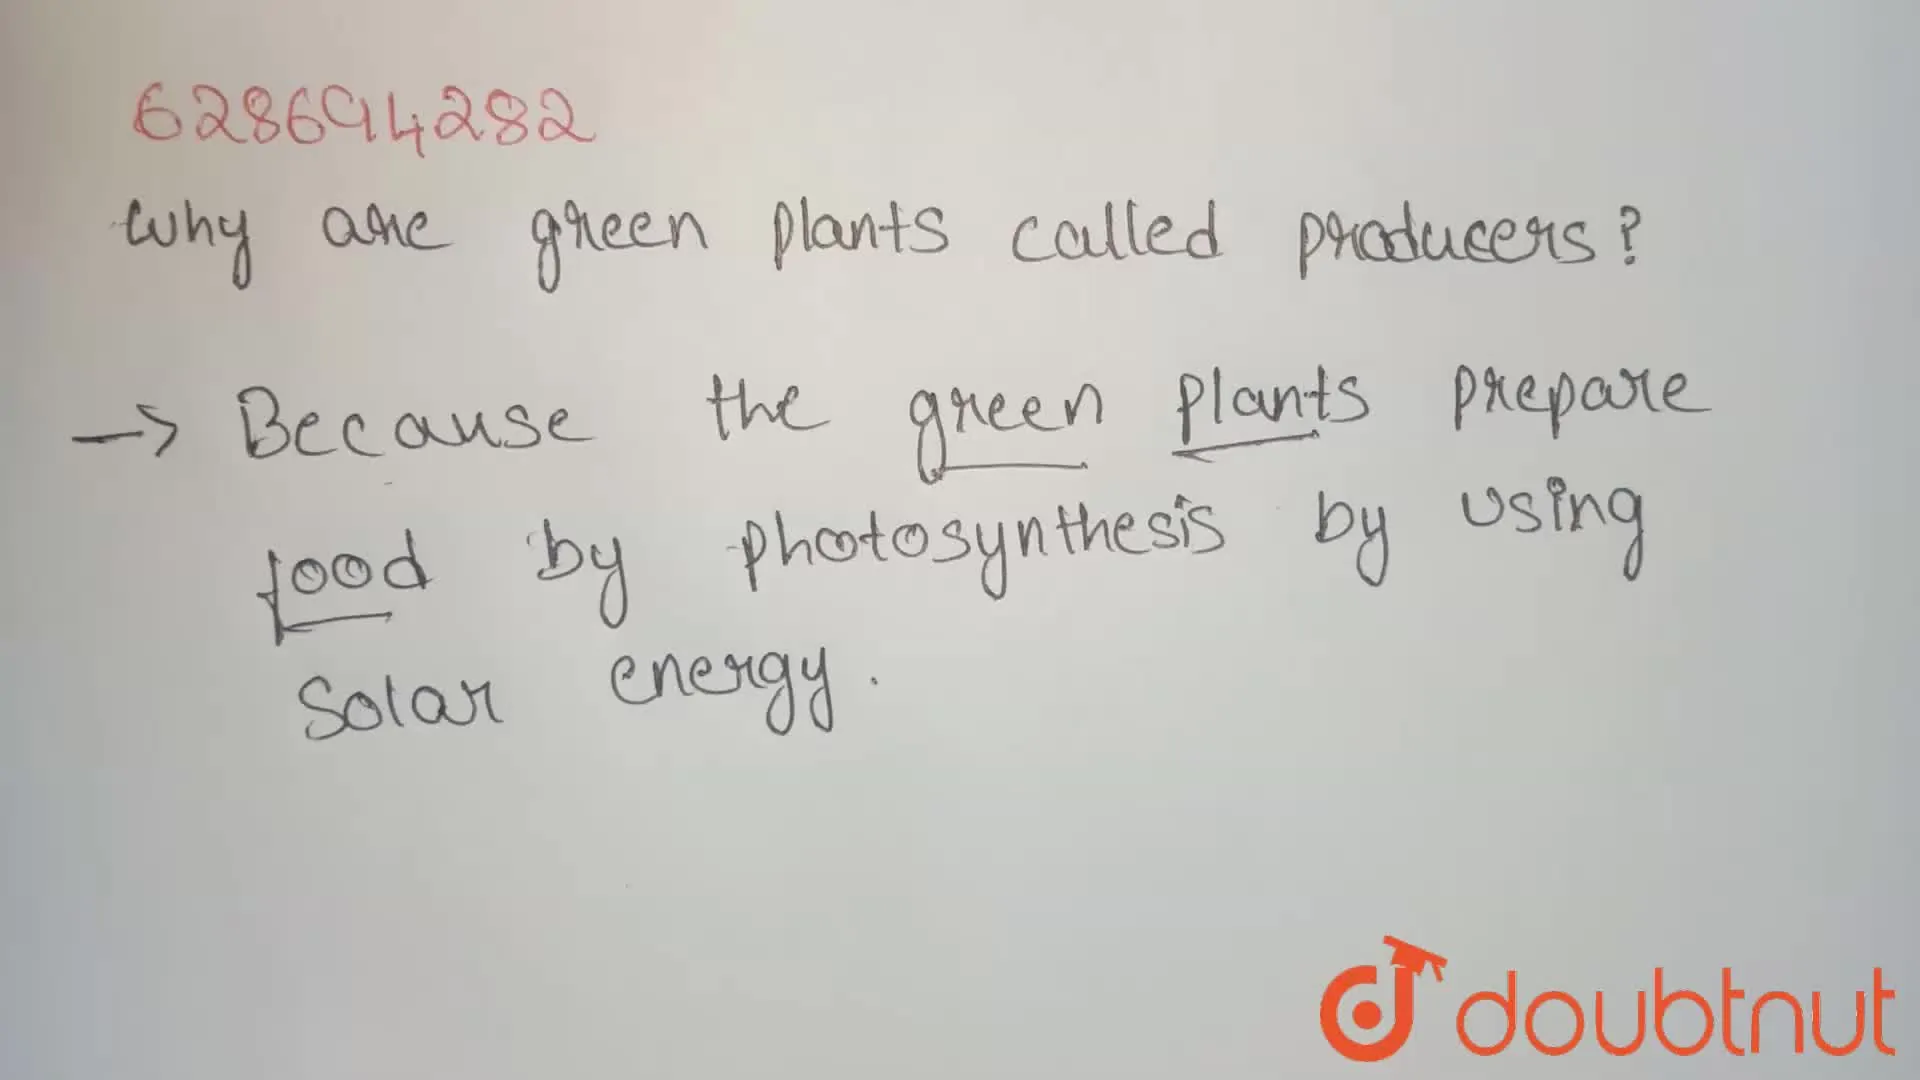 628694282
Why are green plants called producers?
→ Because the green plants prepare
food by photosynthesis by using
solar energy.
doubtnut